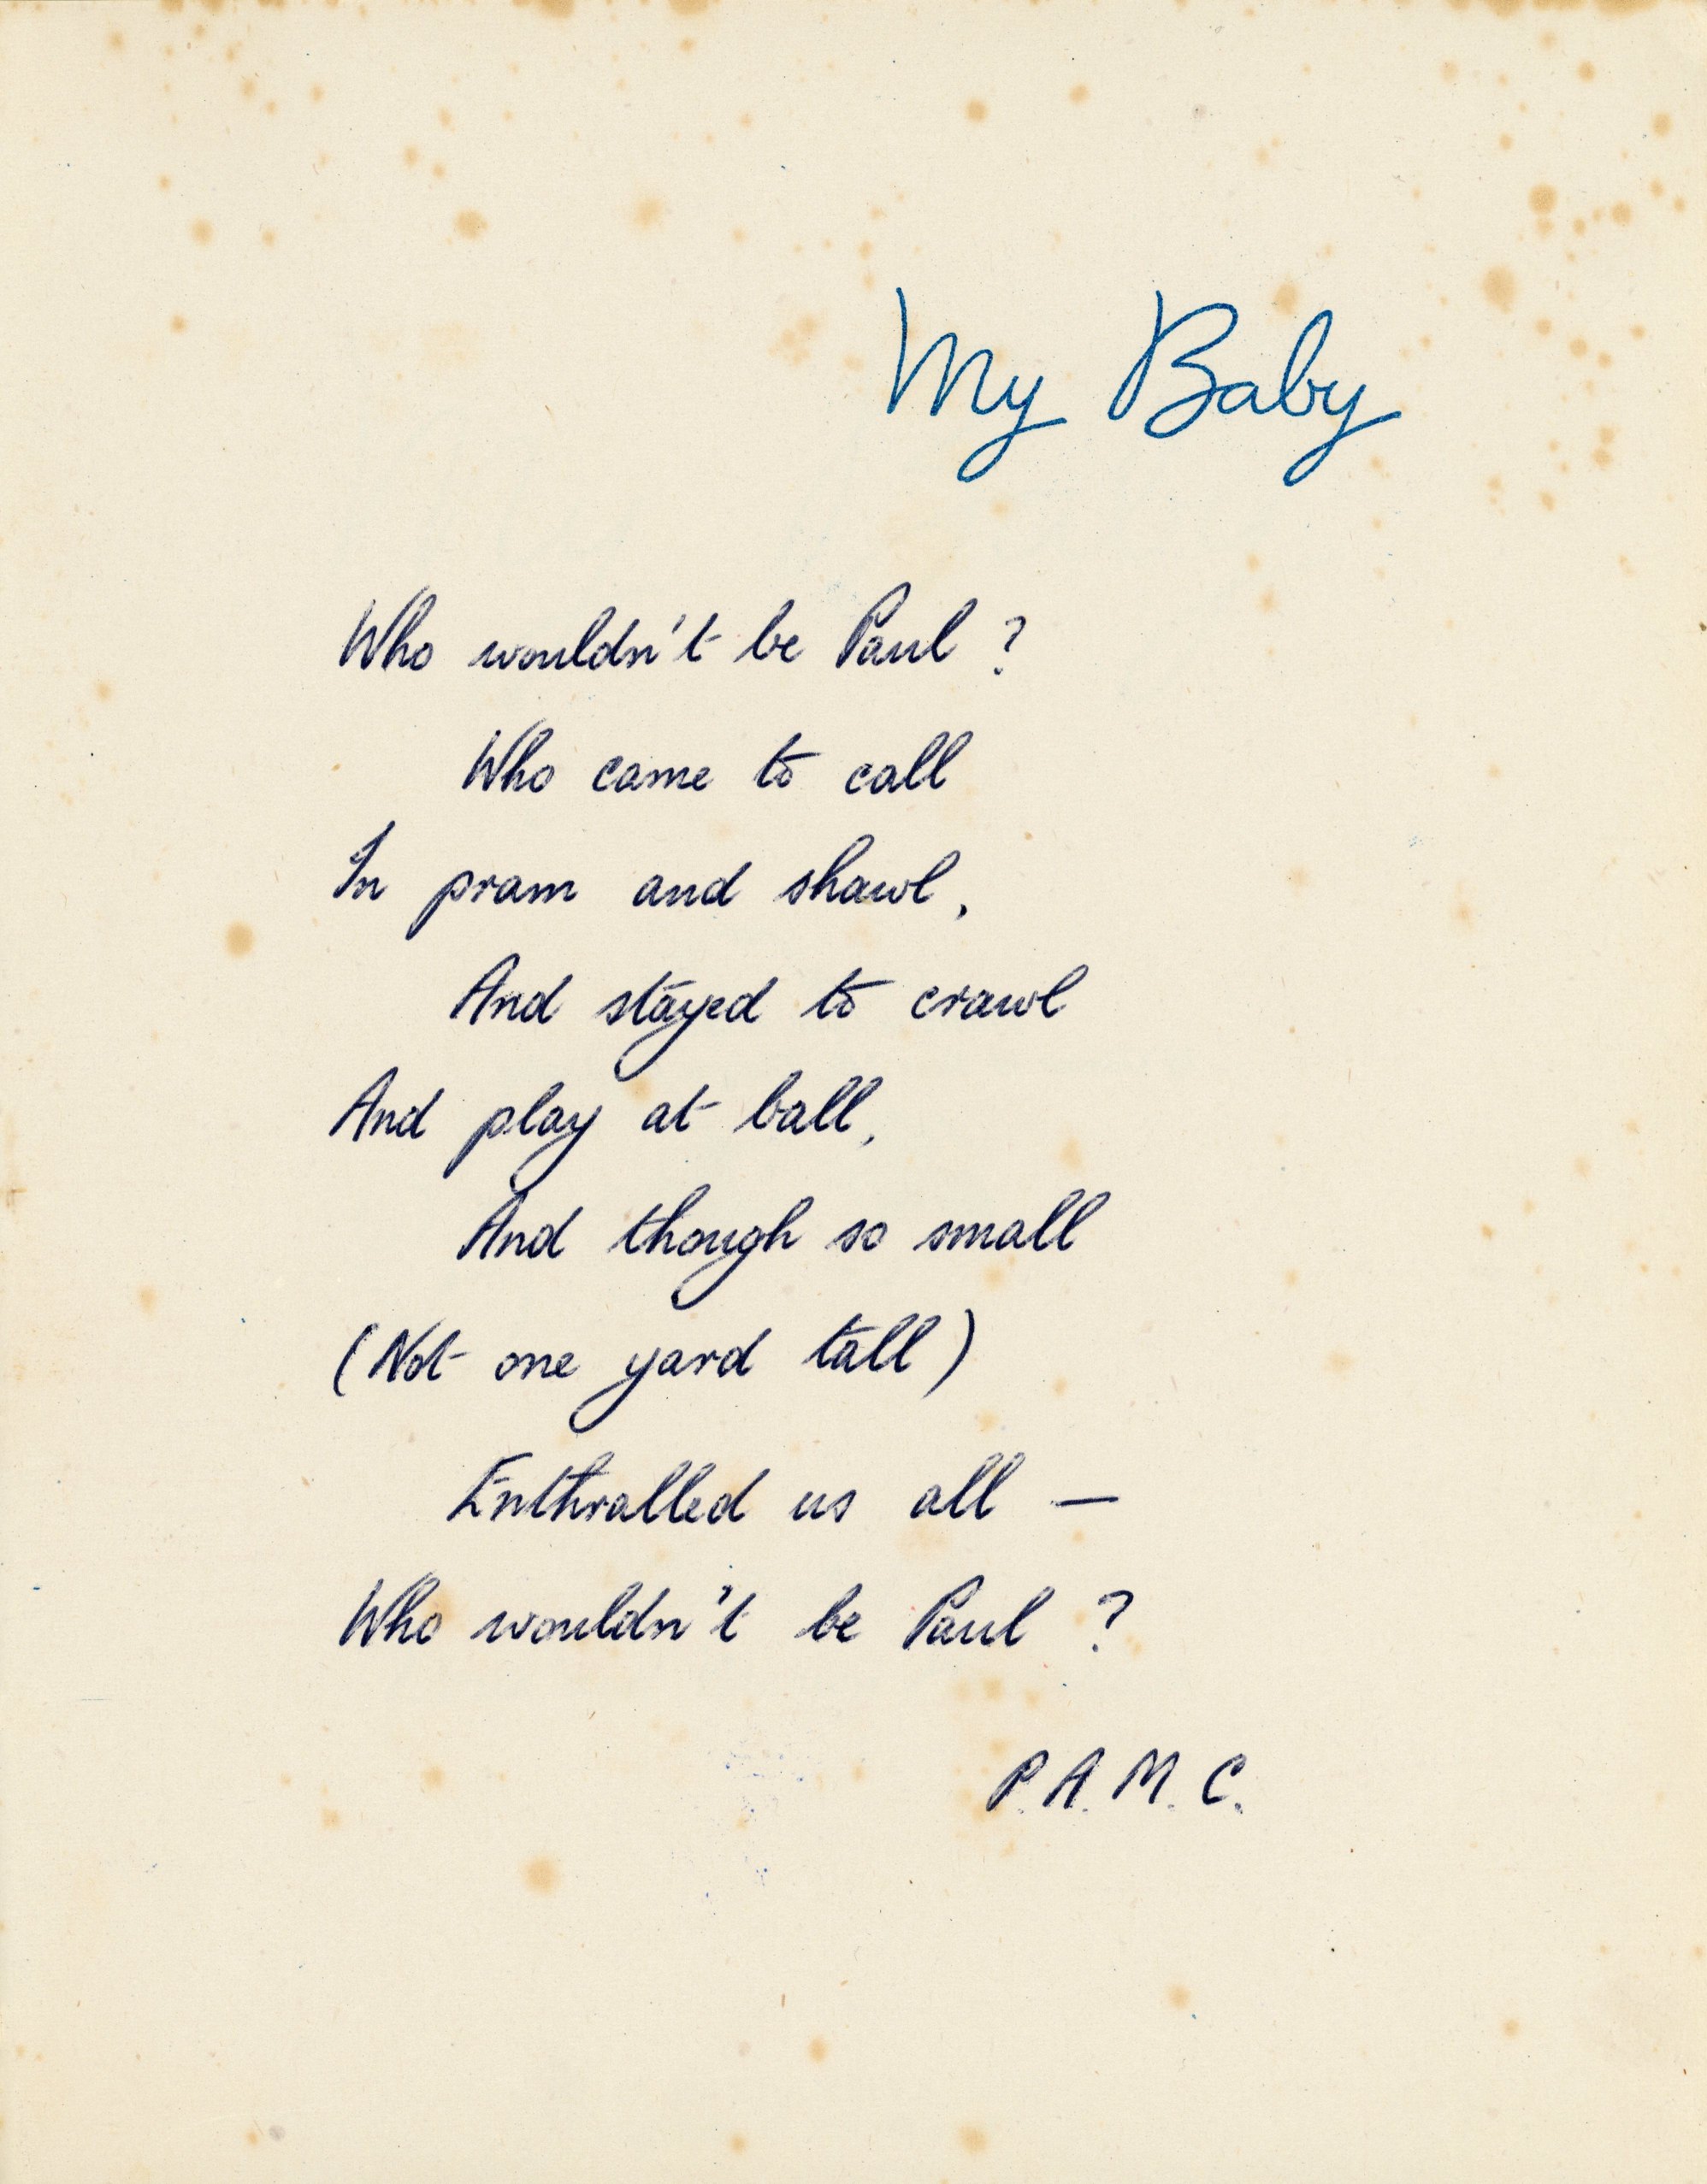 My Baby
Who wouldn't be Paul ?
Who came to call
In pram and shawl,
And stayed to crawl
And play at ball,
And though so small
(Not one yard tall)
Enthralled us all —
Who wouldn't be Paul ?
P.A.M.C.